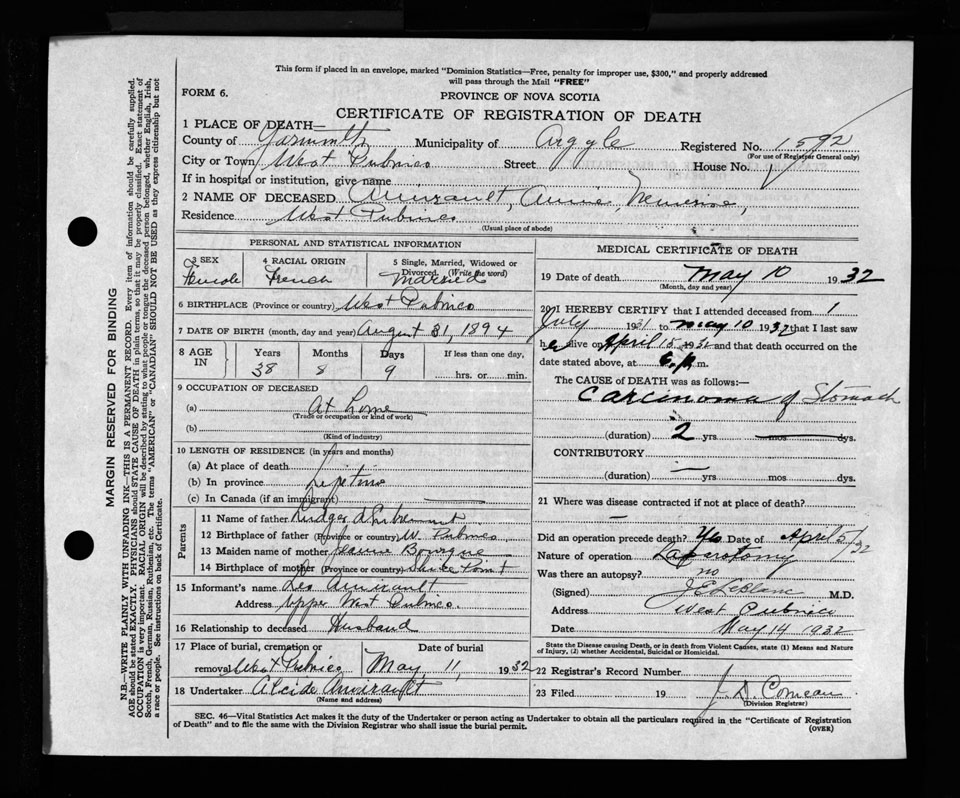 This form if placed in an envelope, marked "Dominion Statistics—Free, penalty for improper use, $300," and properly addressed
will pass through the Mail "FREE"
FORM 6.
PROVINCE OF NOVA SCOTIA
CERTIFICATE OF REGISTRATION OF DEATH
1 PLACE OF DEATH—
County of Yarmouth Municipality of Argyle Registered No. 1592
(For use of Registrar General only)
City or Town West Pubnico Street House No.
If in hospital or institution, give name
2 NAME OF DECEASED Amirault, Annie,
Residence West Pubnico
(Usual place of abode)
PERSONAL AND STATISTICAL INFORMATION
3 SEX 4 RACIAL ORIGIN 5 Single, Married, Widowed or
Divorced. (Write the word)
Female French Married
6 BIRTHPLACE (Province or country) West Pubnico
7 DATE OF BIRTH (month, day and year) August 31, 1894
8 AGE IN Years Months Days If less than one day,
38 8 9 hrs. or min.
9 OCCUPATION OF DECEASED
(a) At home
(Trade or occupation or kind of work)
(b)
(Kind of industry)
10 LENGTH OF RESIDENCE (in years and months)
(a) At place of death
(b) In province Lifetime
(c) In Canada (if an immigrant)
Parents
11 Name of father d'Entremont
12 Birthplace of father (Province or country) W. Pubnico
13 Maiden name of mother Bourque
14 Birthplace of mother (Province or country) Point
15 Informant's name Leo Amirault
Address Upper West Pubnico.
16 Relationship to deceased Husband
17 Place of burial, cremation or Date of burial
removal West Pubnico May 11, 1932
18 Undertaker Alcide Amirault
(Name and address)
MEDICAL CERTIFICATE OF DEATH
19 Date of death May 10 1932
(Month, day and year)
20 I HEREBY CERTIFY that I attended deceased from 1
July 1931 to May 10 1932 that I last saw
her alive on April 15 1932 and that death occurred on the
date stated above, at 6 p. m.
The CAUSE of DEATH was as follows:—
Carcinoma of Stomach
(duration) 2 yrs mos dys.
CONTRIBUTORY
(duration) — yrs mos dys.
21 Where was disease contracted if not at place of death?
—
Did an operation precede death? Yes Date of April 5/32
Nature of operation Laparotomy
Was there an autopsy? no
(Signed) J E LeBlanc M.D.
Address West Pubnico
Date May 14 1932
State the Disease causing Death, or in death from Violent Causes, state (1) Means and Nature
of Injury, (2) whether Accidental, Suicidal or Homicidal.
22 Registrar's Record Number
23 Filed 19 J. D. Comeau
(Division Registrar)
SEC. 46—Vital Statistics Act makes it the duty of the Undertaker or person acting as Undertaker to obtain all the particulars required in the "Certificate of Registration
of Death" and to file the same with the Division Registrar who shall issue the burial permit.
(OVER)
MARGIN RESERVED FOR BINDING
N.B.—WRITE PLAINLY WITH UNFADING INK—THIS IS A PERMANENT RECORD. Every item of information should be carefully supplied.
AGE should be stated EXACTLY. PHYSICIANS should STATE CAUSE OF DEATH in plain terms, so that it may be properly classified. Exact statement of
OCCUPATION is very important. RACIAL ORIGIN will be described by stating to what people or tongue the deceased person belonged, whether English, Irish,
Scotch, French, German, Russian, Ruthenian, etc. The terms "AMERICAN" or "CANADIAN" SHOULD NOT BE USED as they express citizenship but not
a race or people. See instructions on back of Certificate.